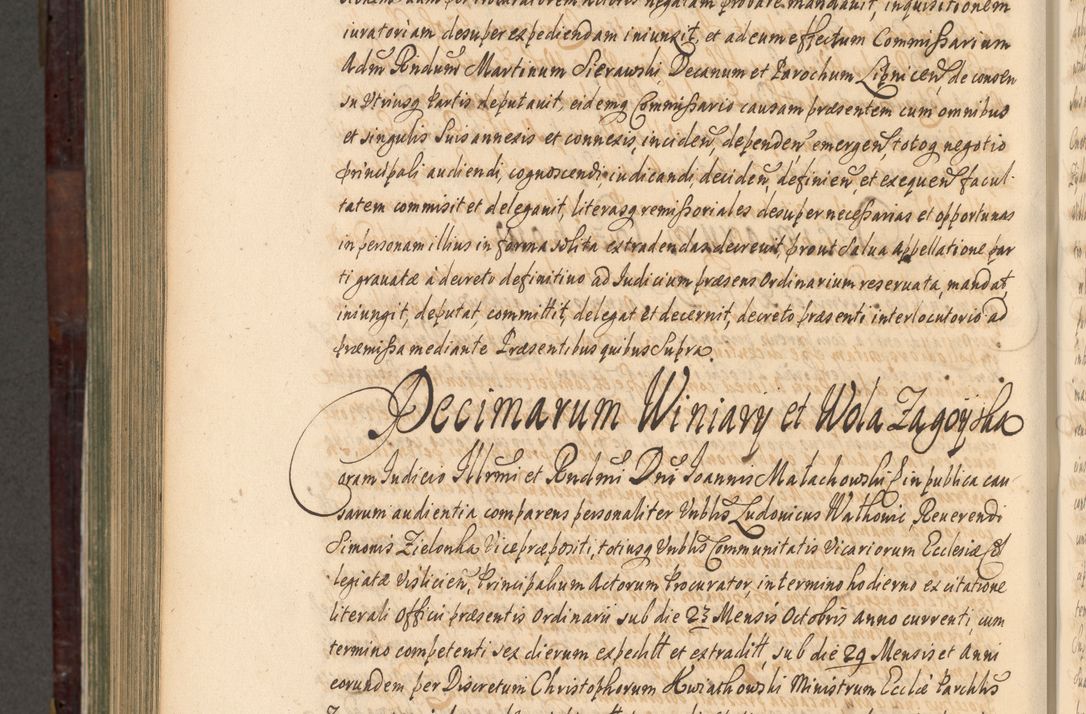 iuratoriam desuper expediendam iniunxit, et ad eum effectum Commissarium
Adm Rndum Martinum Sierawski Decanum et Parochum Lipnicen, de consen
su Utriusq Partis deputauit, eidemq Commissario causam præsentem cum omnibus
et singulis suis annexis et connexis, inciden, dependen emergen, totoq negotio
principali audiendi, cognoscendi, iudicandi, deciden, definien, et exequen facul-
tatem commisit et delegauit, literasq remissoriales desuper necessarias et opportunas
in personam illius in forma solita extradendas decreuit, prout Salua appellatione par
ti grauatæ a decreto definitiuo ad Judicium præsens Ordinarium reseruata, mandat
iniungit, deputat committit, delegat et decernit, decreto præsenti interlocutorio ad
præmissa mediante Præsentibus quibus Supra.
Decimarum Winiary et Wola Zagoyska
Coram Judicio Illrmi et Rndmi Dni Joannis Małachowski in publica cau-
sarum audientia comparens personaliter Vnblis Ludouicus Walkowic Reuerendi
Simonis Zielonka Vicepræpositi, totiusq Vnblis Communitatis Vicariorum Ecclesiæ Col
legiatæ Vislicien, Principalium Actorum Procurator, in termino hodierno ex citatione
literali Officii præsentis Ordinarii sub die 23 Mensis Octobris anno currenti, cum
termino competenti sex dierum expeditt et extraditt, sub die 29 Mensis et Anni
eorundem per Discretum Christophorum Kwiatkowski Ministrum Ecclæ Parchlis